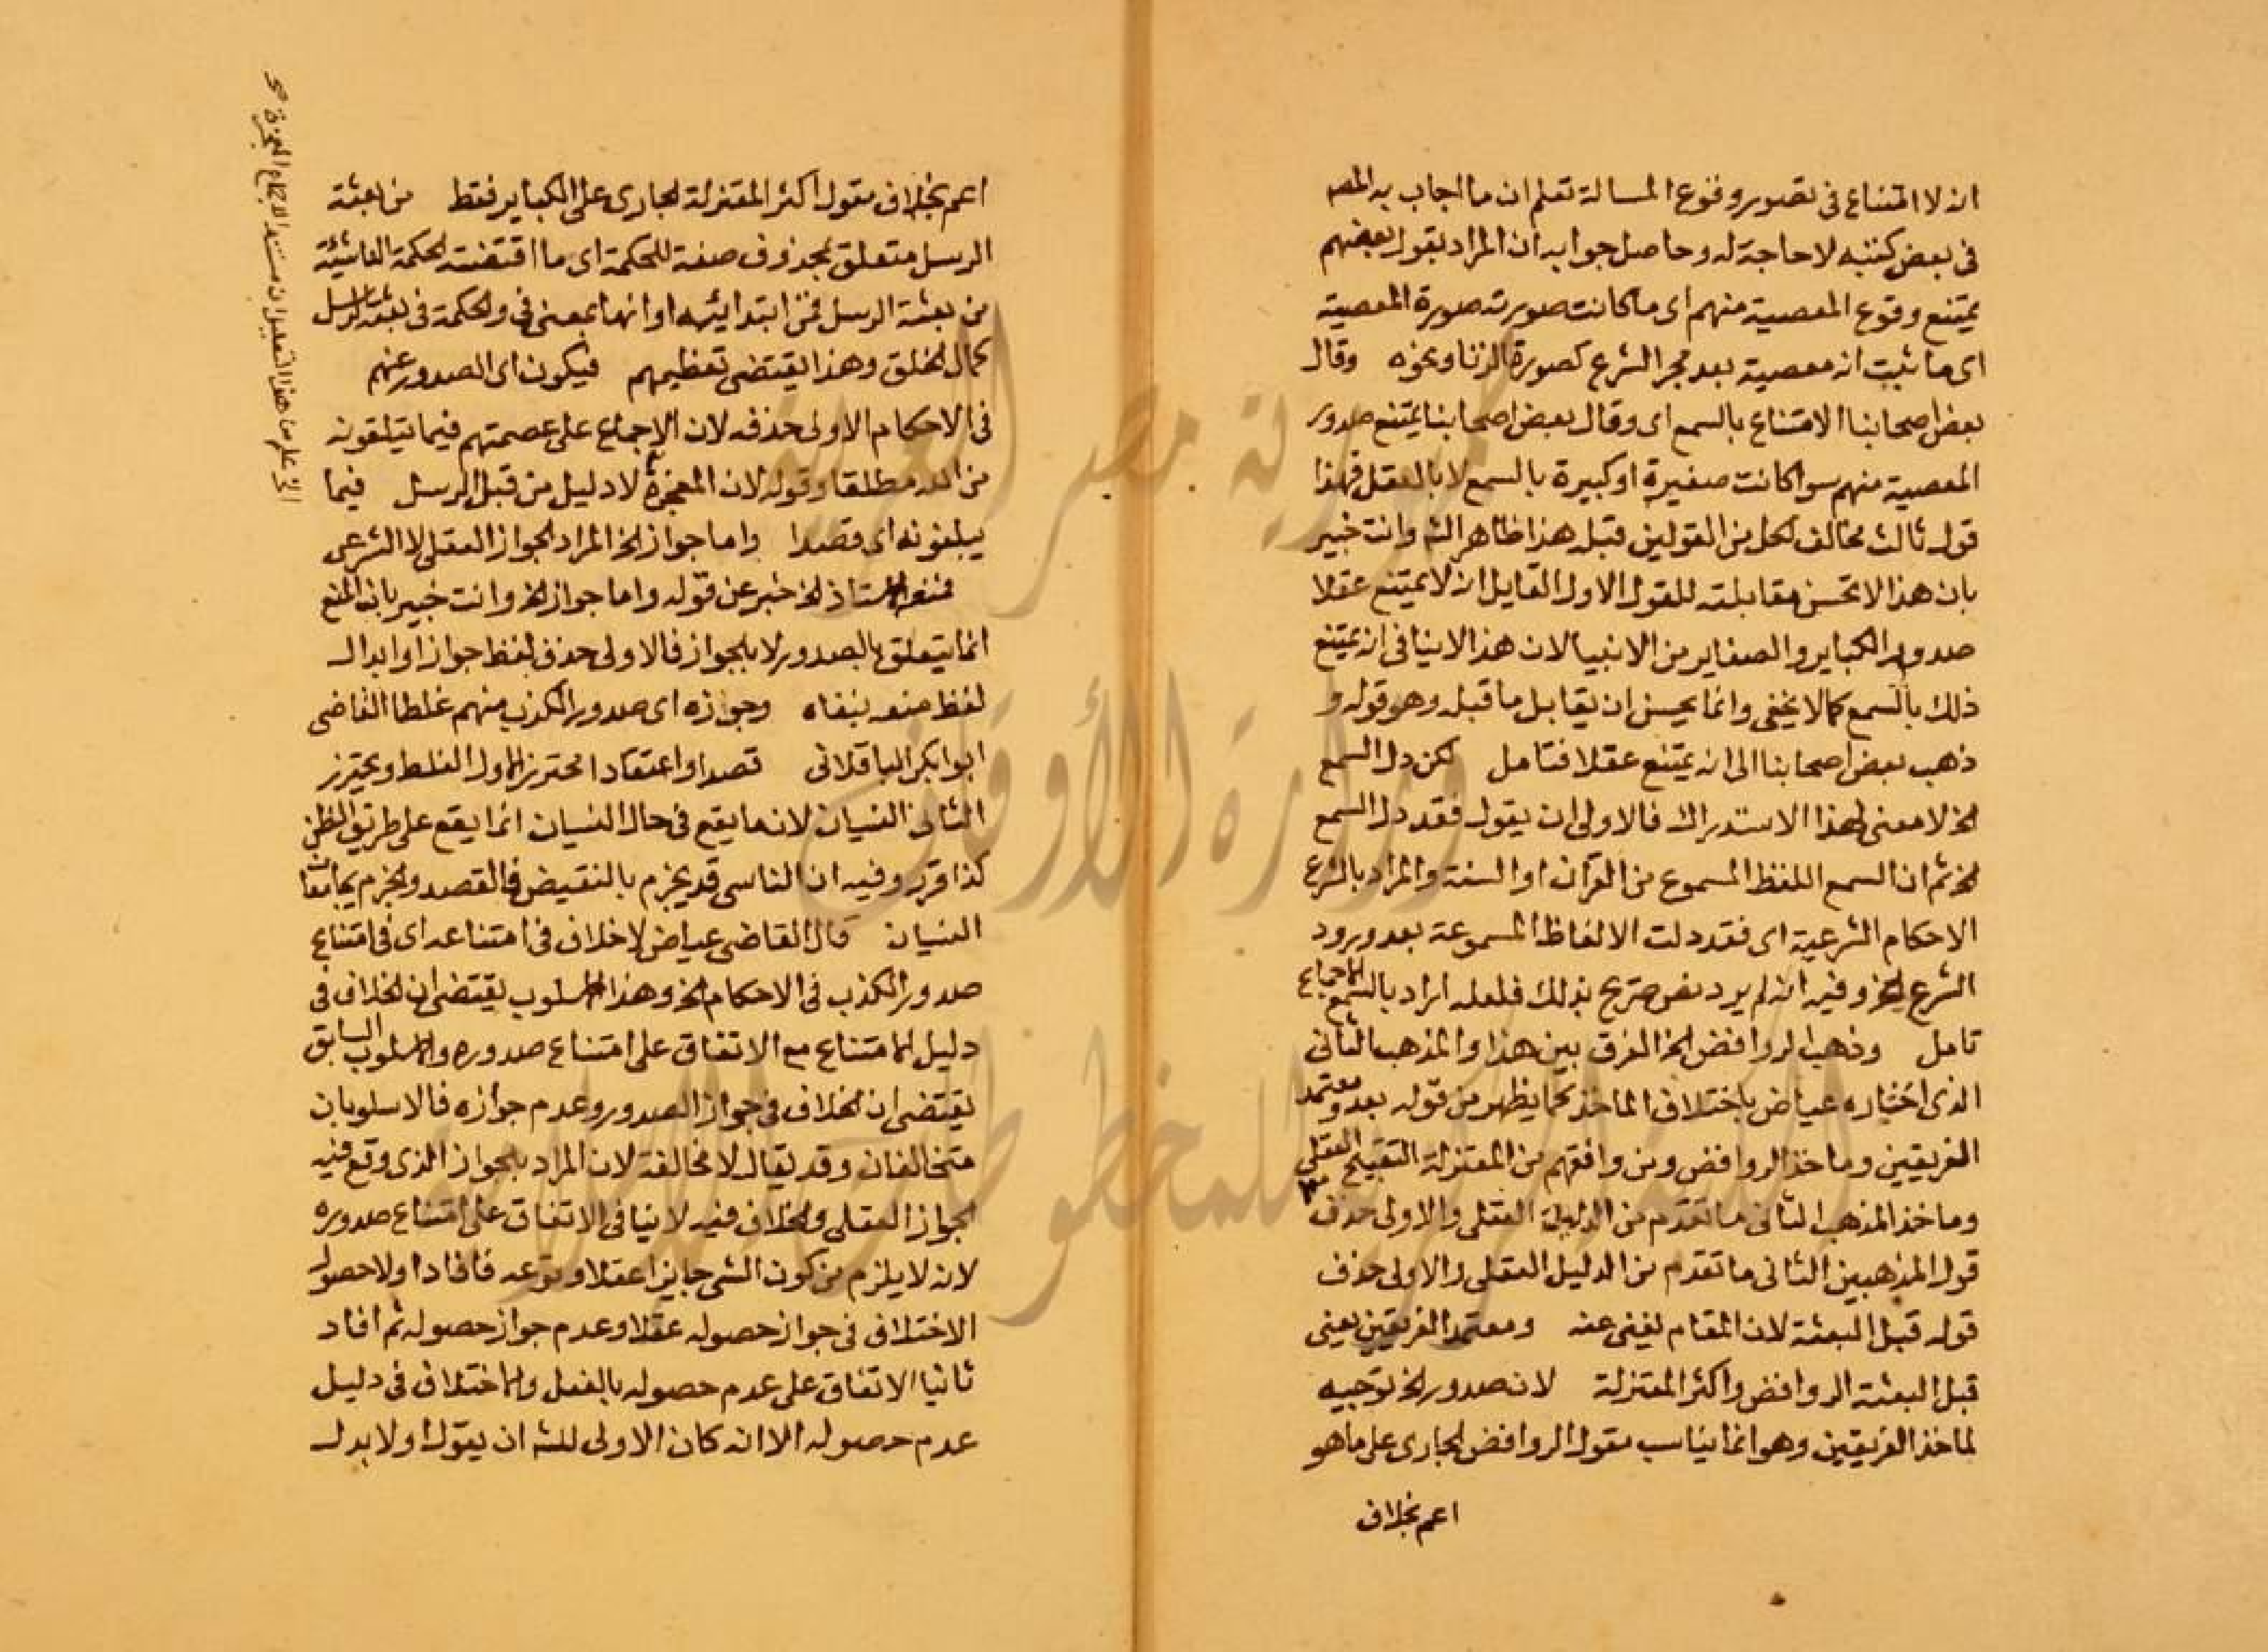 انه لا امتناع فى تصوير وقوع المسالة تعلم ان ما اجاب به المصه
فى بعض كتبه لا حاجة له وحاصل جوابه ان المراد بقول بعضهم
يمتنع وقوع المعصية منهم اى ما كانت صورته صورة المعصية
اى ما ثبت انه معصية بعد مجر الشرع كصورة الزنا ونحوه وقال
بعض اصحابنا الامتناع بالسمع اى وقال بعض اصحابنا يمتنع صدور
المعصية منهم سوا كانت صغيرة او كبيرة بالسمع لا بالعقل فهذا
قول ثالث مخالف لكل من القولين قبله هذا ظاهر الشه وانت خبير
بان هذا لا تحسن مقابلته للقول الاول القايل انه لا يمتنع عقلا
صدور الكباير والصغاير من الانبيا لان هذا لا ينافى انه يمتنع
ذلك بالسمع كما لا يخفى وانما يحسن ان يقابل ما قبله وهو قوله و
ذهب بعض اصحابنا الى انه يمتنع عقلا فتامل لكن دل السمع
الخ لا معنى لهذا الاستدراك فالاولى ان يقول فقد دل السمع
الخ ثم ان السمع اللفظ المسموع من القرآن او السنة والمراد بالشرع
الاحكام الشرعية اى فقد دلت الالفاظ المسموعة بعد ورود
الشرع الخ وفيه انه لم يرد نص صريح بذلك فلعله اراد بالسمع الاجماع
تامل وذهب الروافض الخ الفرق بين هذا والمذهب الثانى
الذى اختاره عياض باختلاف الماخذ كما يظهر من قوله بعد ومعتمد
الفريقين وماخذ الروافض ومن وافقهم من المعتزلة التقبيح العقلى
وماخذ المذهب الثانى ما تقدم من الدليل العقلى والاولى حذف
قول المذهبين الثانى ما تقدم من الدليل العقلى والاولى حذف
قوله قبل البعثة لان المقام يغنى عنه ومعتمد الفريقين يعنى
قبل البعثة الروافض واكثر المعتزلة لان صدور الخ توجيه
لماخذ الفريقين وهو انما يناسب مقول الروافض الجارى على ما هو
اعم بخلاف
اعم بخلاف مقول اكثر المعتزلة الجارى على الكباير فقط من بعثة
الرسل متعلق بمحذوف صفة للحكمة اى ما اقتضته الحكمة الناشئة
من بعثة الرسل فمن ابتدائيه او انها بمعنى فى والحكمة فى بعثة الرسل
كمال الخلق وهذا يقتضى تعظيمهم فيكون اى الصدور عنهم
فى الاحكام الاولى حذفه لان الاجماع على عصمتهم فيما يتلقونه
من الله مطلقا وقوله لان المعجزة لا دليل من قبل الرسل فيما
يبلغونه اى قصدا واما جواز الخ المراد الجواز العقلى لا الشرعى
فمنع الاستاذ الخ خبر عن قوله واما جواز الخ وانت خبير بان المنع
انما يتعلق بالصدور لا بالجواز فالاولى حذف لفظ جواز او ابدال
لفظ منعه بنفاه وجوازه اى صدور الكذب منهم غلطا القاضى
ابو بكر الباقلانى قصدا واعتقادا محترز الاول الغلط ويحترز
الثانى النسيان لان ما يقع فى حال النسيان انما يقع على طريق الظن
كذا قرر وفيه ان الناسى قد يجزم بالنقيض فالقصد والجزم يجامعان
النسيان قال القاضى عياض لا خلاف فى امتناعه اى فى امتناع
صدور الكذب فى الاحكام الخ وهذا الاسلوب يقتضى ان الخلاف فى
دليل الامتناع مع الاتفاق على امتناع صدوره والاسلوب السابق
يقتضى ان الخلاف فى جواز الصدور وعدم جوازه فالاسلوبان
متخالفان وقد يقال لا مخالفة لان المراد بالجواز الذى وقع فيه
الجواز العقلى والخلاف فيه لا ينافى الاتفاق على امتناع صدوره
لانه لا يلزم من كون الشى جايزا عقلا وقوعه فافاد اولا حصول
الاختلاف فى جواز حصوله عقلا وعدم جواز حصوله ثم افاد
ثانيا الاتفاق على عدم حصوله بالفعل والاختلاف فى دليل
عدم حصوله الا انه كان الاولى للشه ان يقول اولا بدل
علم من هذا التعليل ان مستند الاجماع المعجزة صح
جمهورية مصر العربية
وزارة الأوقاف
المكتبة المركزية للمخطوطات الإسلامية